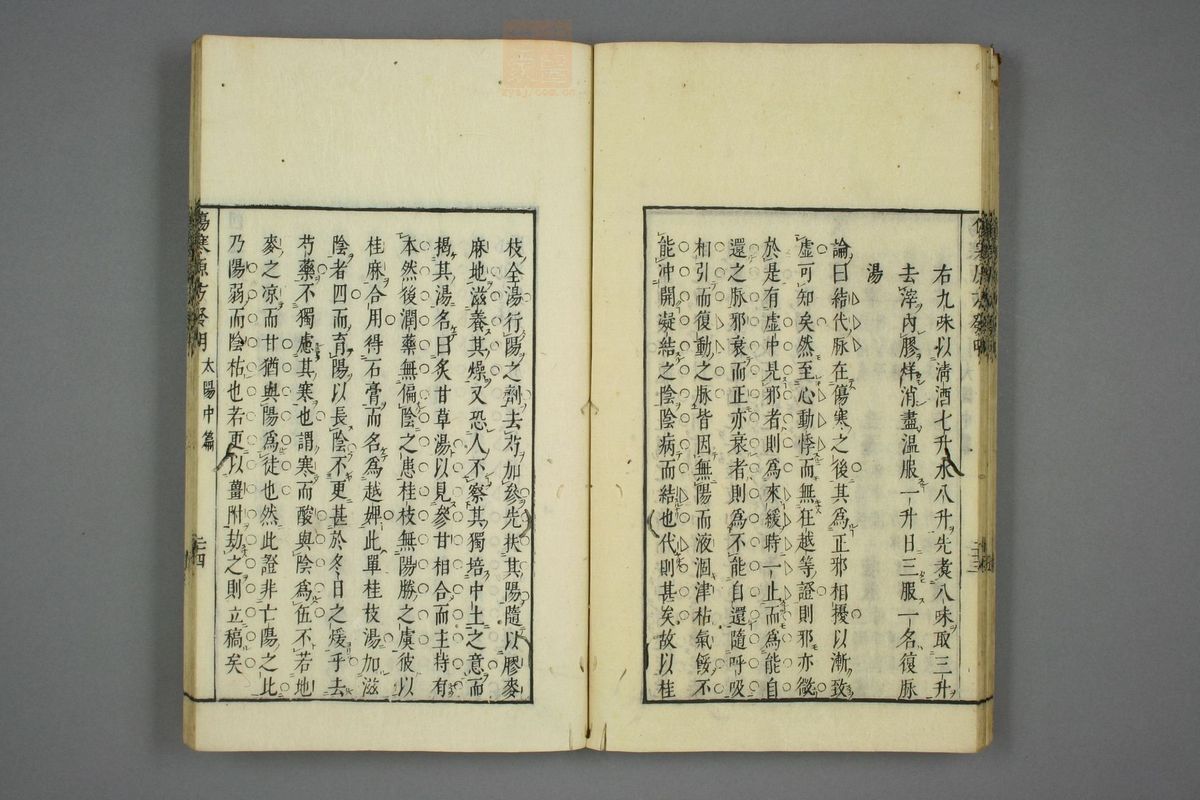 右九味以清酒七升水八升先煑八味取三升
去滓內膠烊消盡溫服一升日三服一名復脉
湯
論曰結代脉在傷寒之後其爲正邪相擾以漸致
虛可知矣然至心動悸而無狂越等證則邪亦微
於是有虛中見邪者則爲來緩時一止而爲能自
還之脉邪衰而正亦衰者則爲不能自還隨呼吸
相引而復動之脉皆因無陽而液涸津枯氣餒不
能冲開凝結之陰陰病而結也代則甚矣故以桂
二三
枝全湯行陽之劑去芍加參先扶其陽隨以膠麥
麻地滋養其燥又恐人不察其獨培中土之意而
揭其湯名曰炙甘草湯以見參甘相合而主持有
本然後潤藥無偏陰之患桂枝無陽勝之虞彼以
桂麻合用得石膏而名爲越婢此單桂枝湯加滋
陰者四而育陽以長陰不更甚於冬日之煖乎去
芍藥不獨慮其寒也謂寒而酸與陰爲伍不若地
麥之凉而甘猶與陽爲徒也然此證非亡陽之比
乃陽弱而陰枯也若更以薑附劫之則立稿矣
傷寒源方發明
太陽中篇
二四
zysj.com.cn